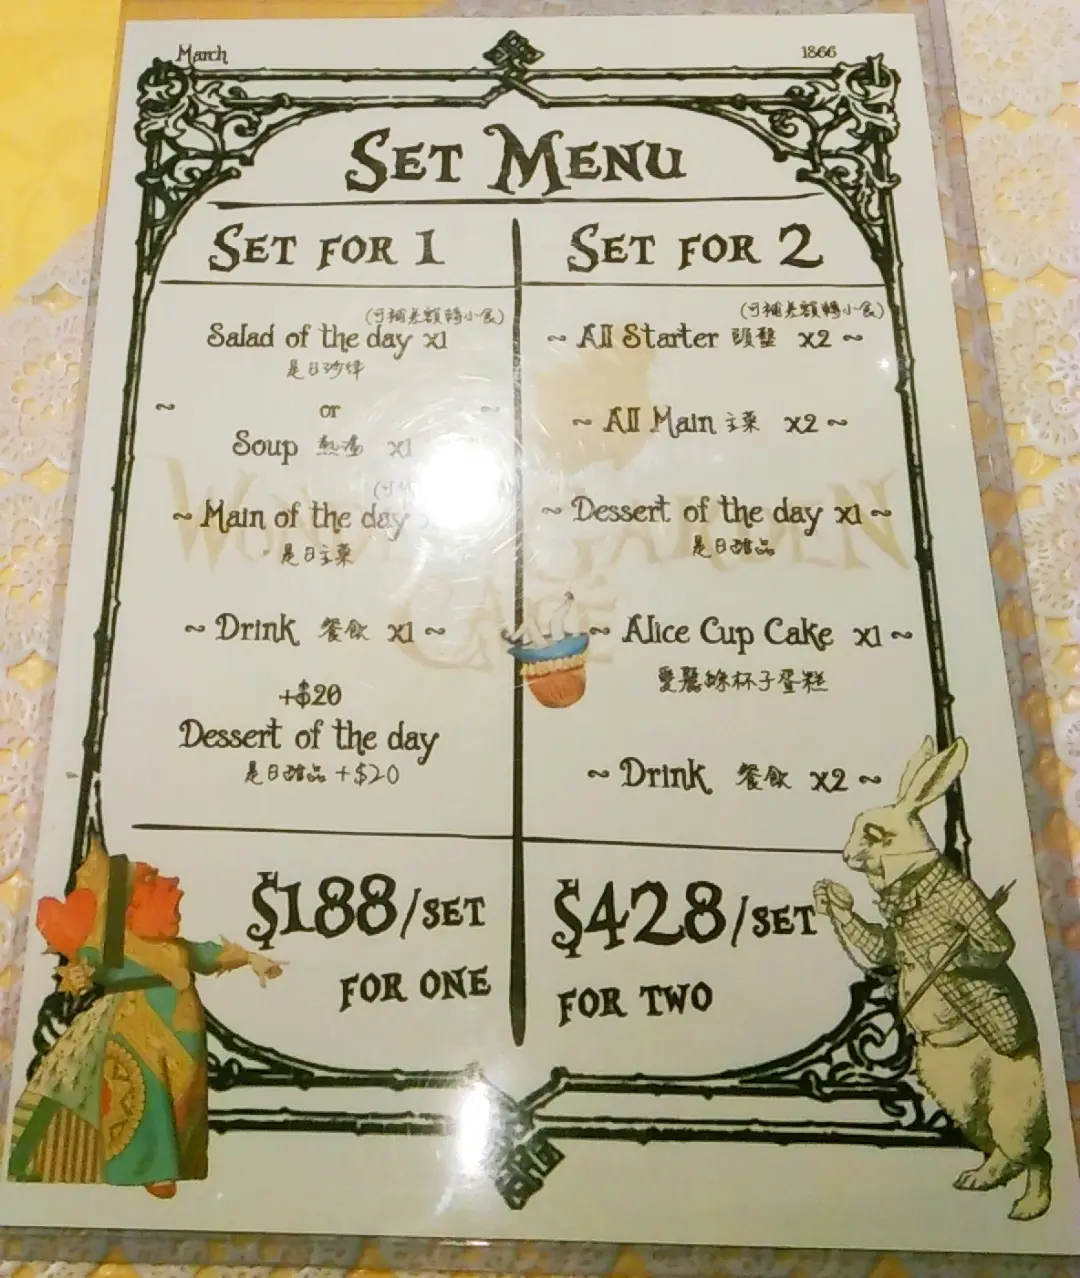 March
1866
SET MENU
SET FOR 1
(可補差額轉小食)
Salad of the day x1
是日沙律
~ or ~
Soup 熱湯 x1
~ Main of the day
是日主菜
~ Drink 餐飲 x1 ~
+$20
Dessert of the day
是日甜品 +$20
$188/SET
FOR ONE
SET FOR 2
(可補差額轉小食)
~ All Starter 頭盤 x2 ~
~ All Main 主菜 x2 ~
~ Dessert of the day x1 ~
是日甜品
~ Alice Cup Cake x1 ~
愛麗絲杯子蛋糕
~ Drink 餐飲 x2 ~
$428/SET
FOR TWO
CAFÉ